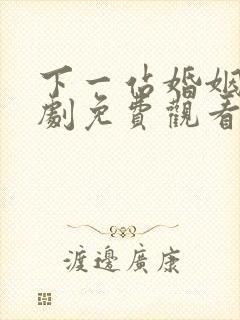 下一佔婚姻
劇免費觀看
渡邊廣康